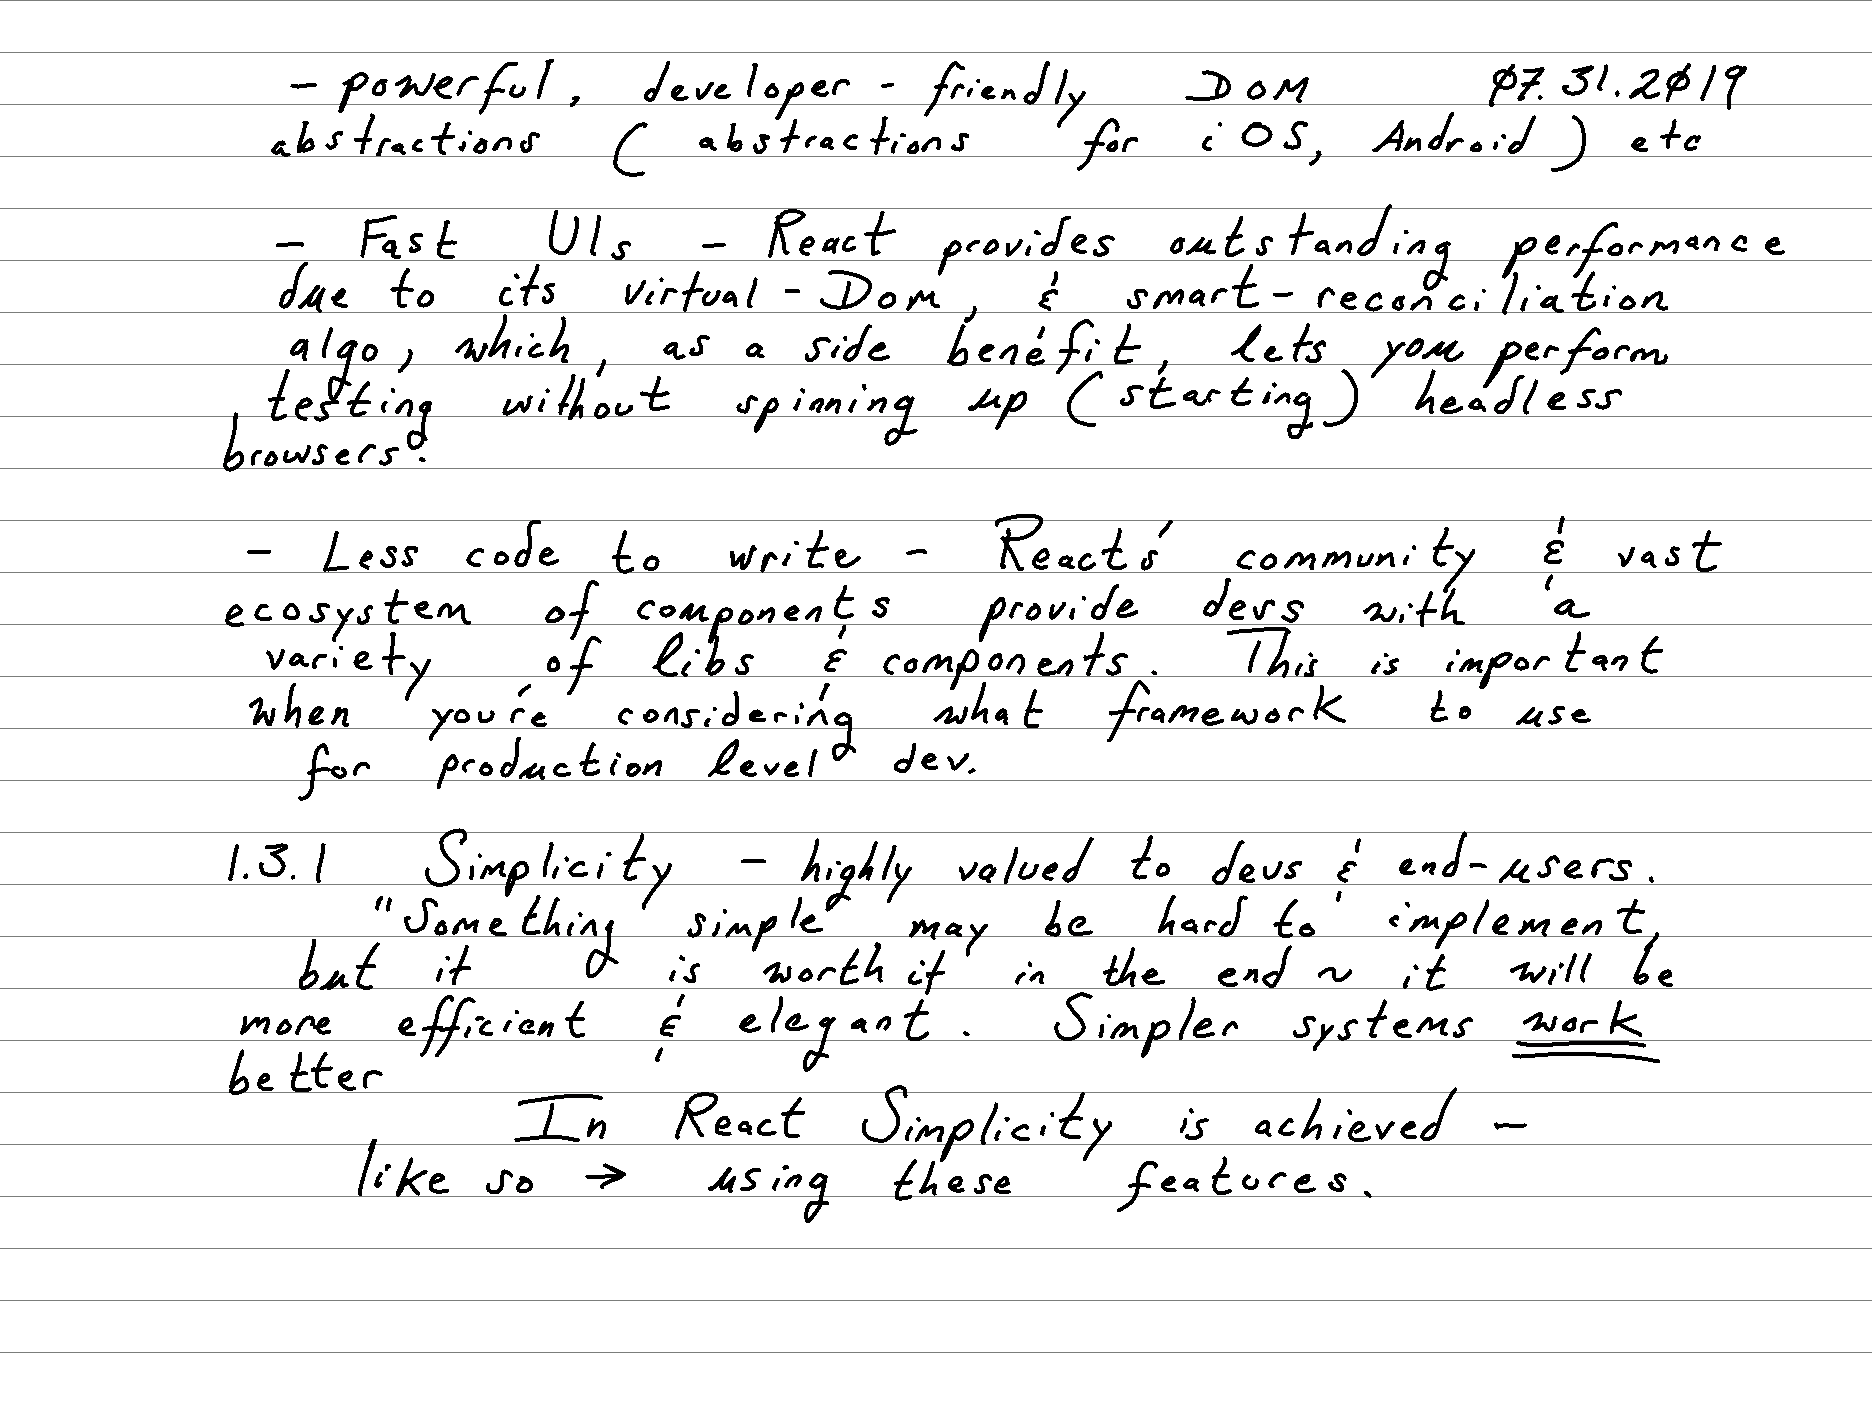 - powerful, developer-friendly DOM 07.31.2019
abstractions (abstractions for iOS, Android) etc
- Fast UIs - React provides outstanding performance
due to its virtual-Dom, & smart-reconciliation
algo, which, as a side benefit, lets you perform
testing without spinning up (starting) headless
browsers.
- Less code to write - React's community & vast
ecosystem of components provide devs with a
variety of libs & components. This is important
when you're considering what framework to use
for production level dev.
1.3.1 Simplicity - highly valued to devs & end-users.
"Something simple" may be hard to implement,
but it is worth it in the end ~ it will be
more efficient & elegant. Simpler systems work
better
In React Simplicity is achieved -
like so → using these features.